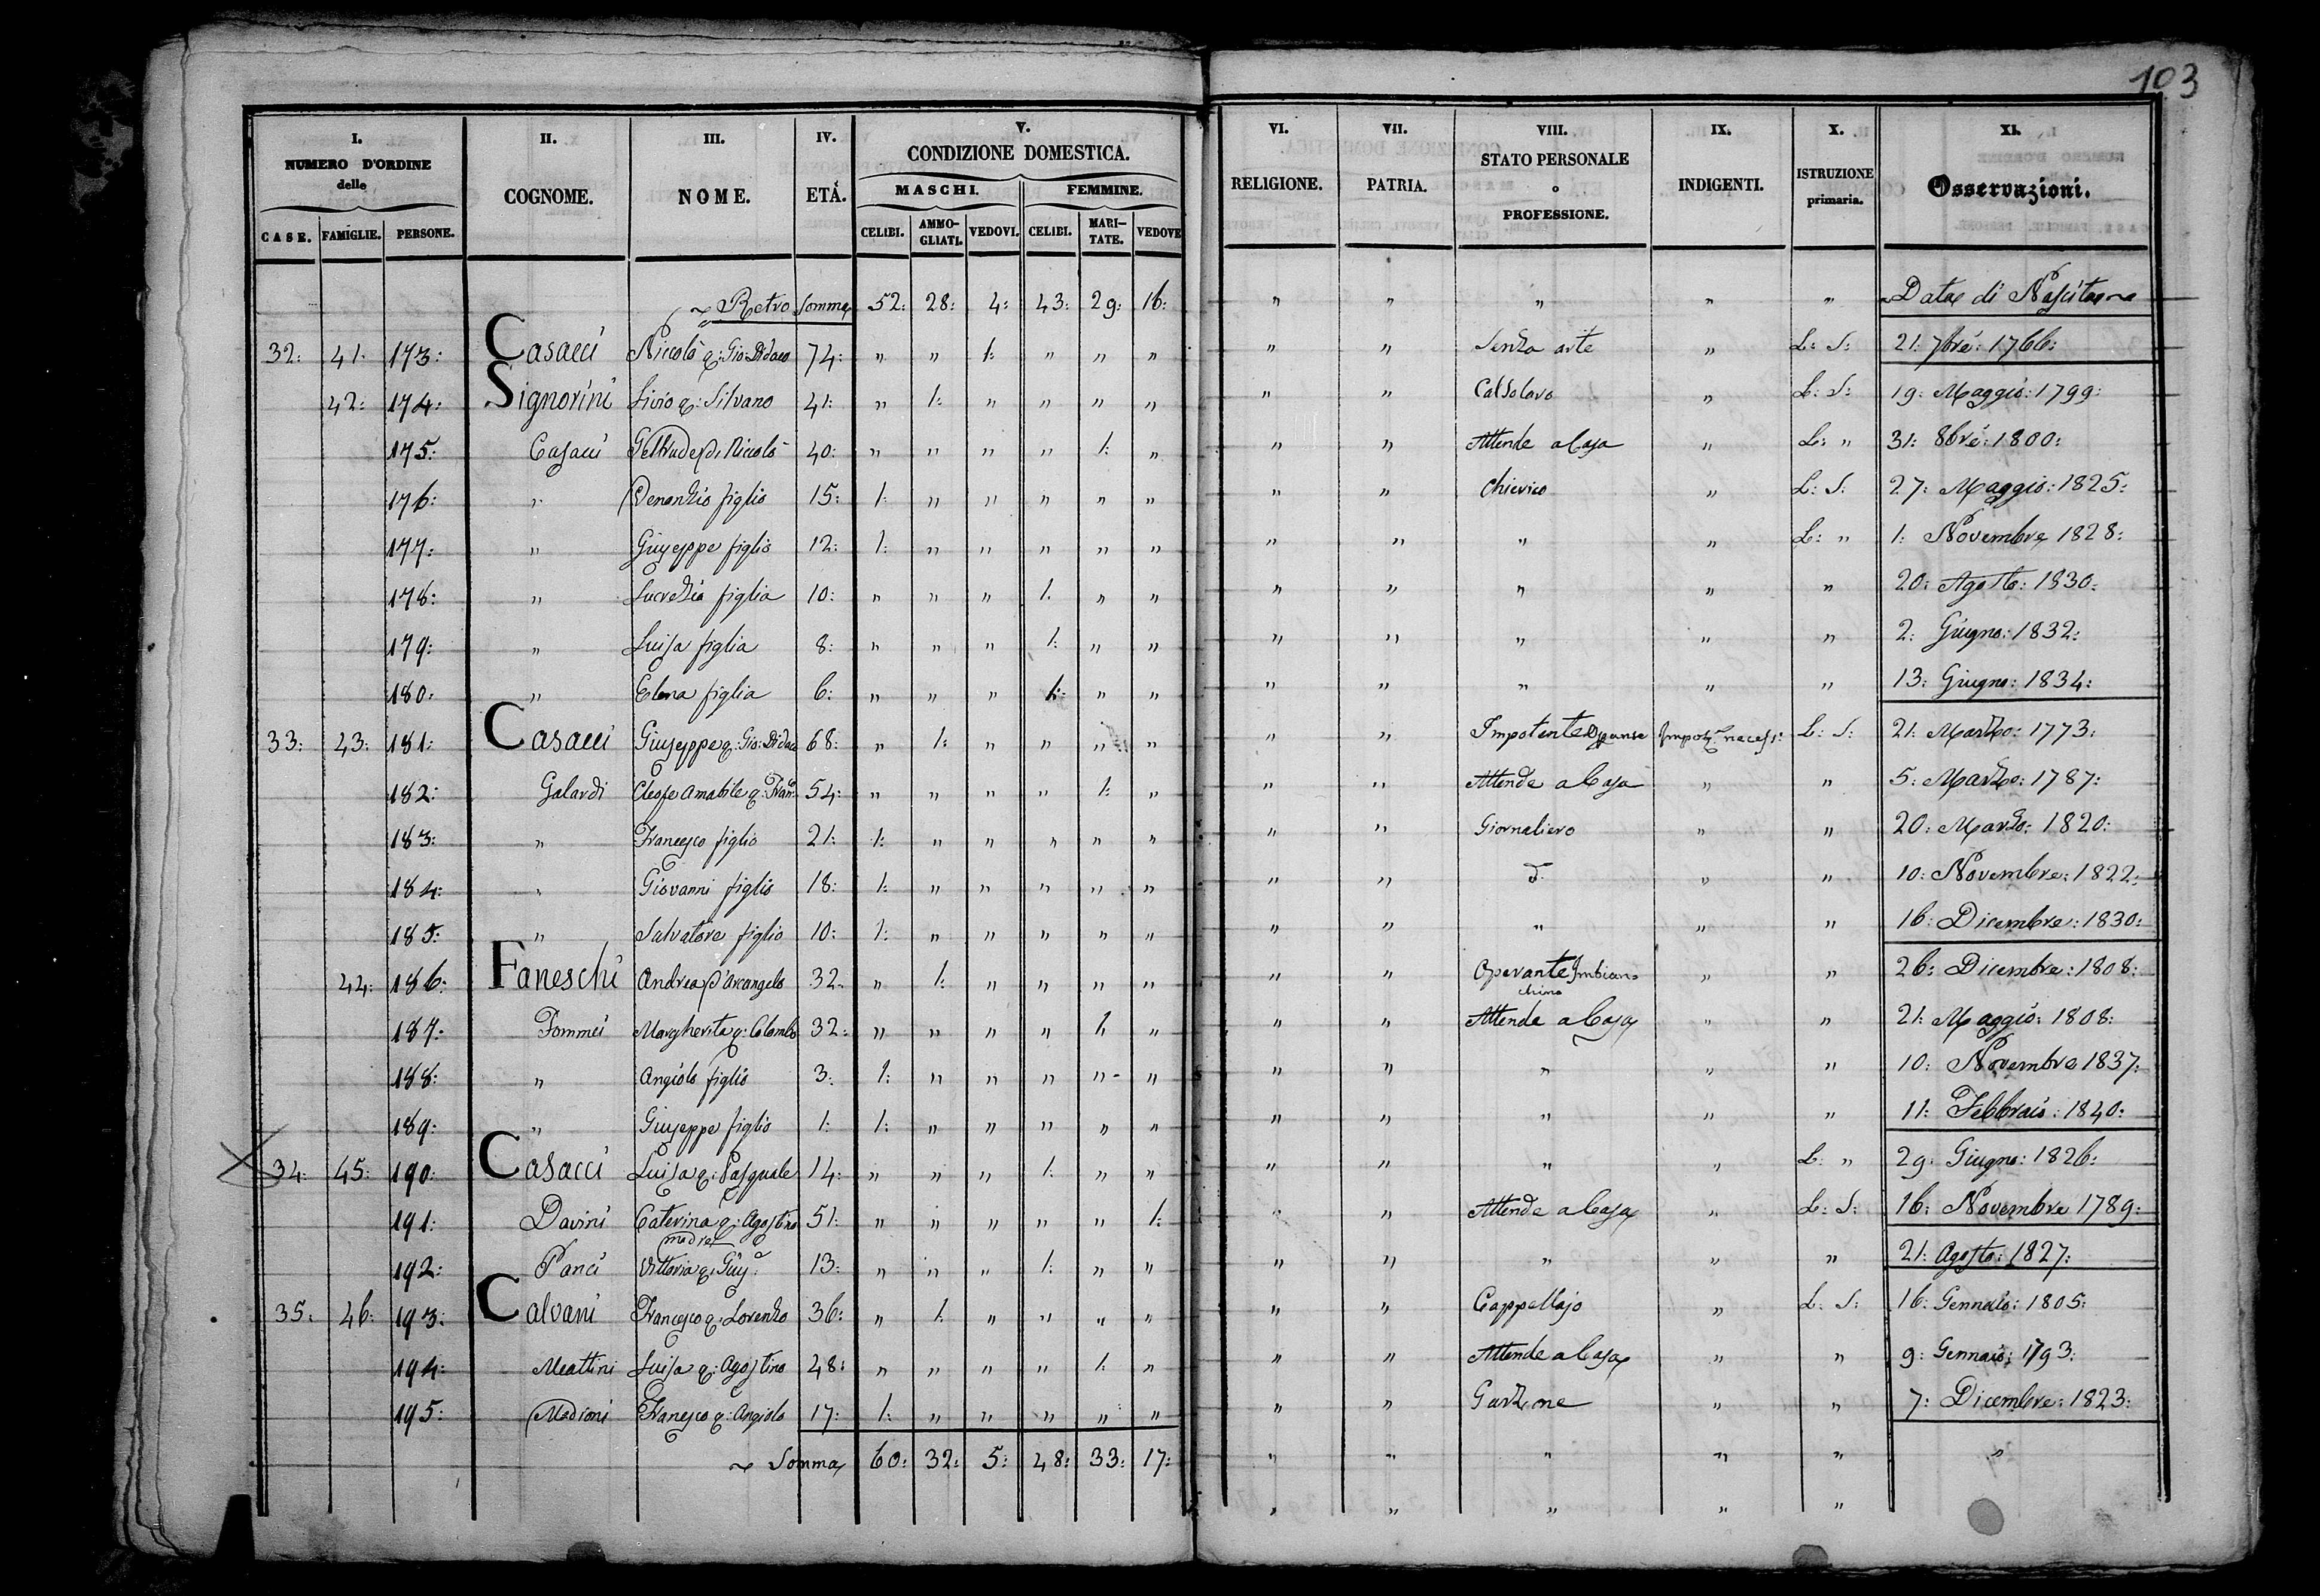 103
I. II. III. IV. V. VI. VII. VIII. IX. X. XI.
NUMERO D'ORDINE delle COGNOME. NOME. ETÀ. CONDIZIONE DOMESTICA. RELIGIONE. PATRIA. STATO PERSONALE o PROFESSIONE. INDIGENTI. ISTRUZIONE primaria. Osservazioni.
MASCHI. FEMMINE.
CASE. FAMIGLIE. PERSONE. CELIBI. AMMO-GLIATI. VEDOVI. CELIBI. MARI-TATE. VEDOVE
Retro Somma 52: 28: 4: 43: 29: 16: " " " " " Data di Nascita
32: 41: 173: Casacci Niccolò q: Gio: Didaco 74: " " 1: " " " " " Senza arte " L: S: 21: 7bre: 1766:
42: 174: Signorini Livio q: Silvano 41: " 1: " " " " " " Calzolaro " L: S: 19: Maggio: 1799:
175: Casacci Geltrude di Niccolò 40: " " " " 1: " " " Attende a Casa " L: " 31: 8bre: 1800:
176: " Venanzio figlio 15: 1: " " " " " " " Chierico " L: S: 27: Maggio: 1825:
177: " Giuseppe figlio 12: 1: " " " " " " " " " L: " 1: Novembre 1828:
178: " Lucrezia figlia 10: " " " 1: " " " " " " " 20: Agosto: 1830:
179: " Luisa figlia 8: " " " 1: " " " " " " " 2: Giugno: 1832:
180: " Elena figlia 6: " " " 1: " " " " " " " 13: Giugno: 1834:
33: 43: 181: Casacci Giuseppe q: Gio: Didac 68: " 1: " " " " " " Impotente L: S: 21: Marzo: 1773:
182: Galardi Cleofe Amabile q: Franco 54: " " " " 1: " " " Attende a Casa " " 5: Marzo: 1787:
183: " Francesco figlio 21: 1: " " " " " " " Giornaliero " " 20: Marzo: 1820:
184: " Giovanni figlio 18: 1: " " " " " " " d: " " 10: Novembre: 1822:
185: " Salvatore figlio 10: 1: " " " " " " " " " " 16: Dicembre: 1830:
44: 186: Faneschi Andrea d'Arcangelo 32: " 1: " " " " " " Operante Imbian chino " " 26: Dicembre: 1808:
187: Fommei Margherita q: Colombo 32: " " " " 1: " " " Attende a Casa " " 21: Maggio: 1808:
188: " Angiolo figlio 3: 1: " " " " " " " " " " 10: Novembre 1837:
189: " Giuseppe figlio 1: 1: " " " " " " " " " " 11: Febbraio: 1840:
34: 45: 190: Casacci Luisa q: Pasquale 14: " " " 1: " " " " " " L: " 29: Giugno: 1826:
191: Davini Caterina q: Agostino madre 51: " " " " " 1: " " Attende a Casa " L: S: 16: Novembre 1789:
192: Panci Vittoria q: Giuse 13: " " " 1: " " " " " " " 21: Agosto: 1827:
35: 46: 193: Calvani Francesco q: Lorenzo 36: " 1: " " " " " " Cappellajo " L: S: 16: Gennaio: 1805:
194: Meattini Luisa q: Agostino 48: " " " " 1: " " " Attende a Casa " " 9: Gennaio: 1793:
195: Madioni Francesco q: Angiolo 17: 1: " " " " " " " Garzone " " 7: Dicembre: 1823:
Somma 60: 32: 5: 48: 33: 17: " " " " " "
" " " " "